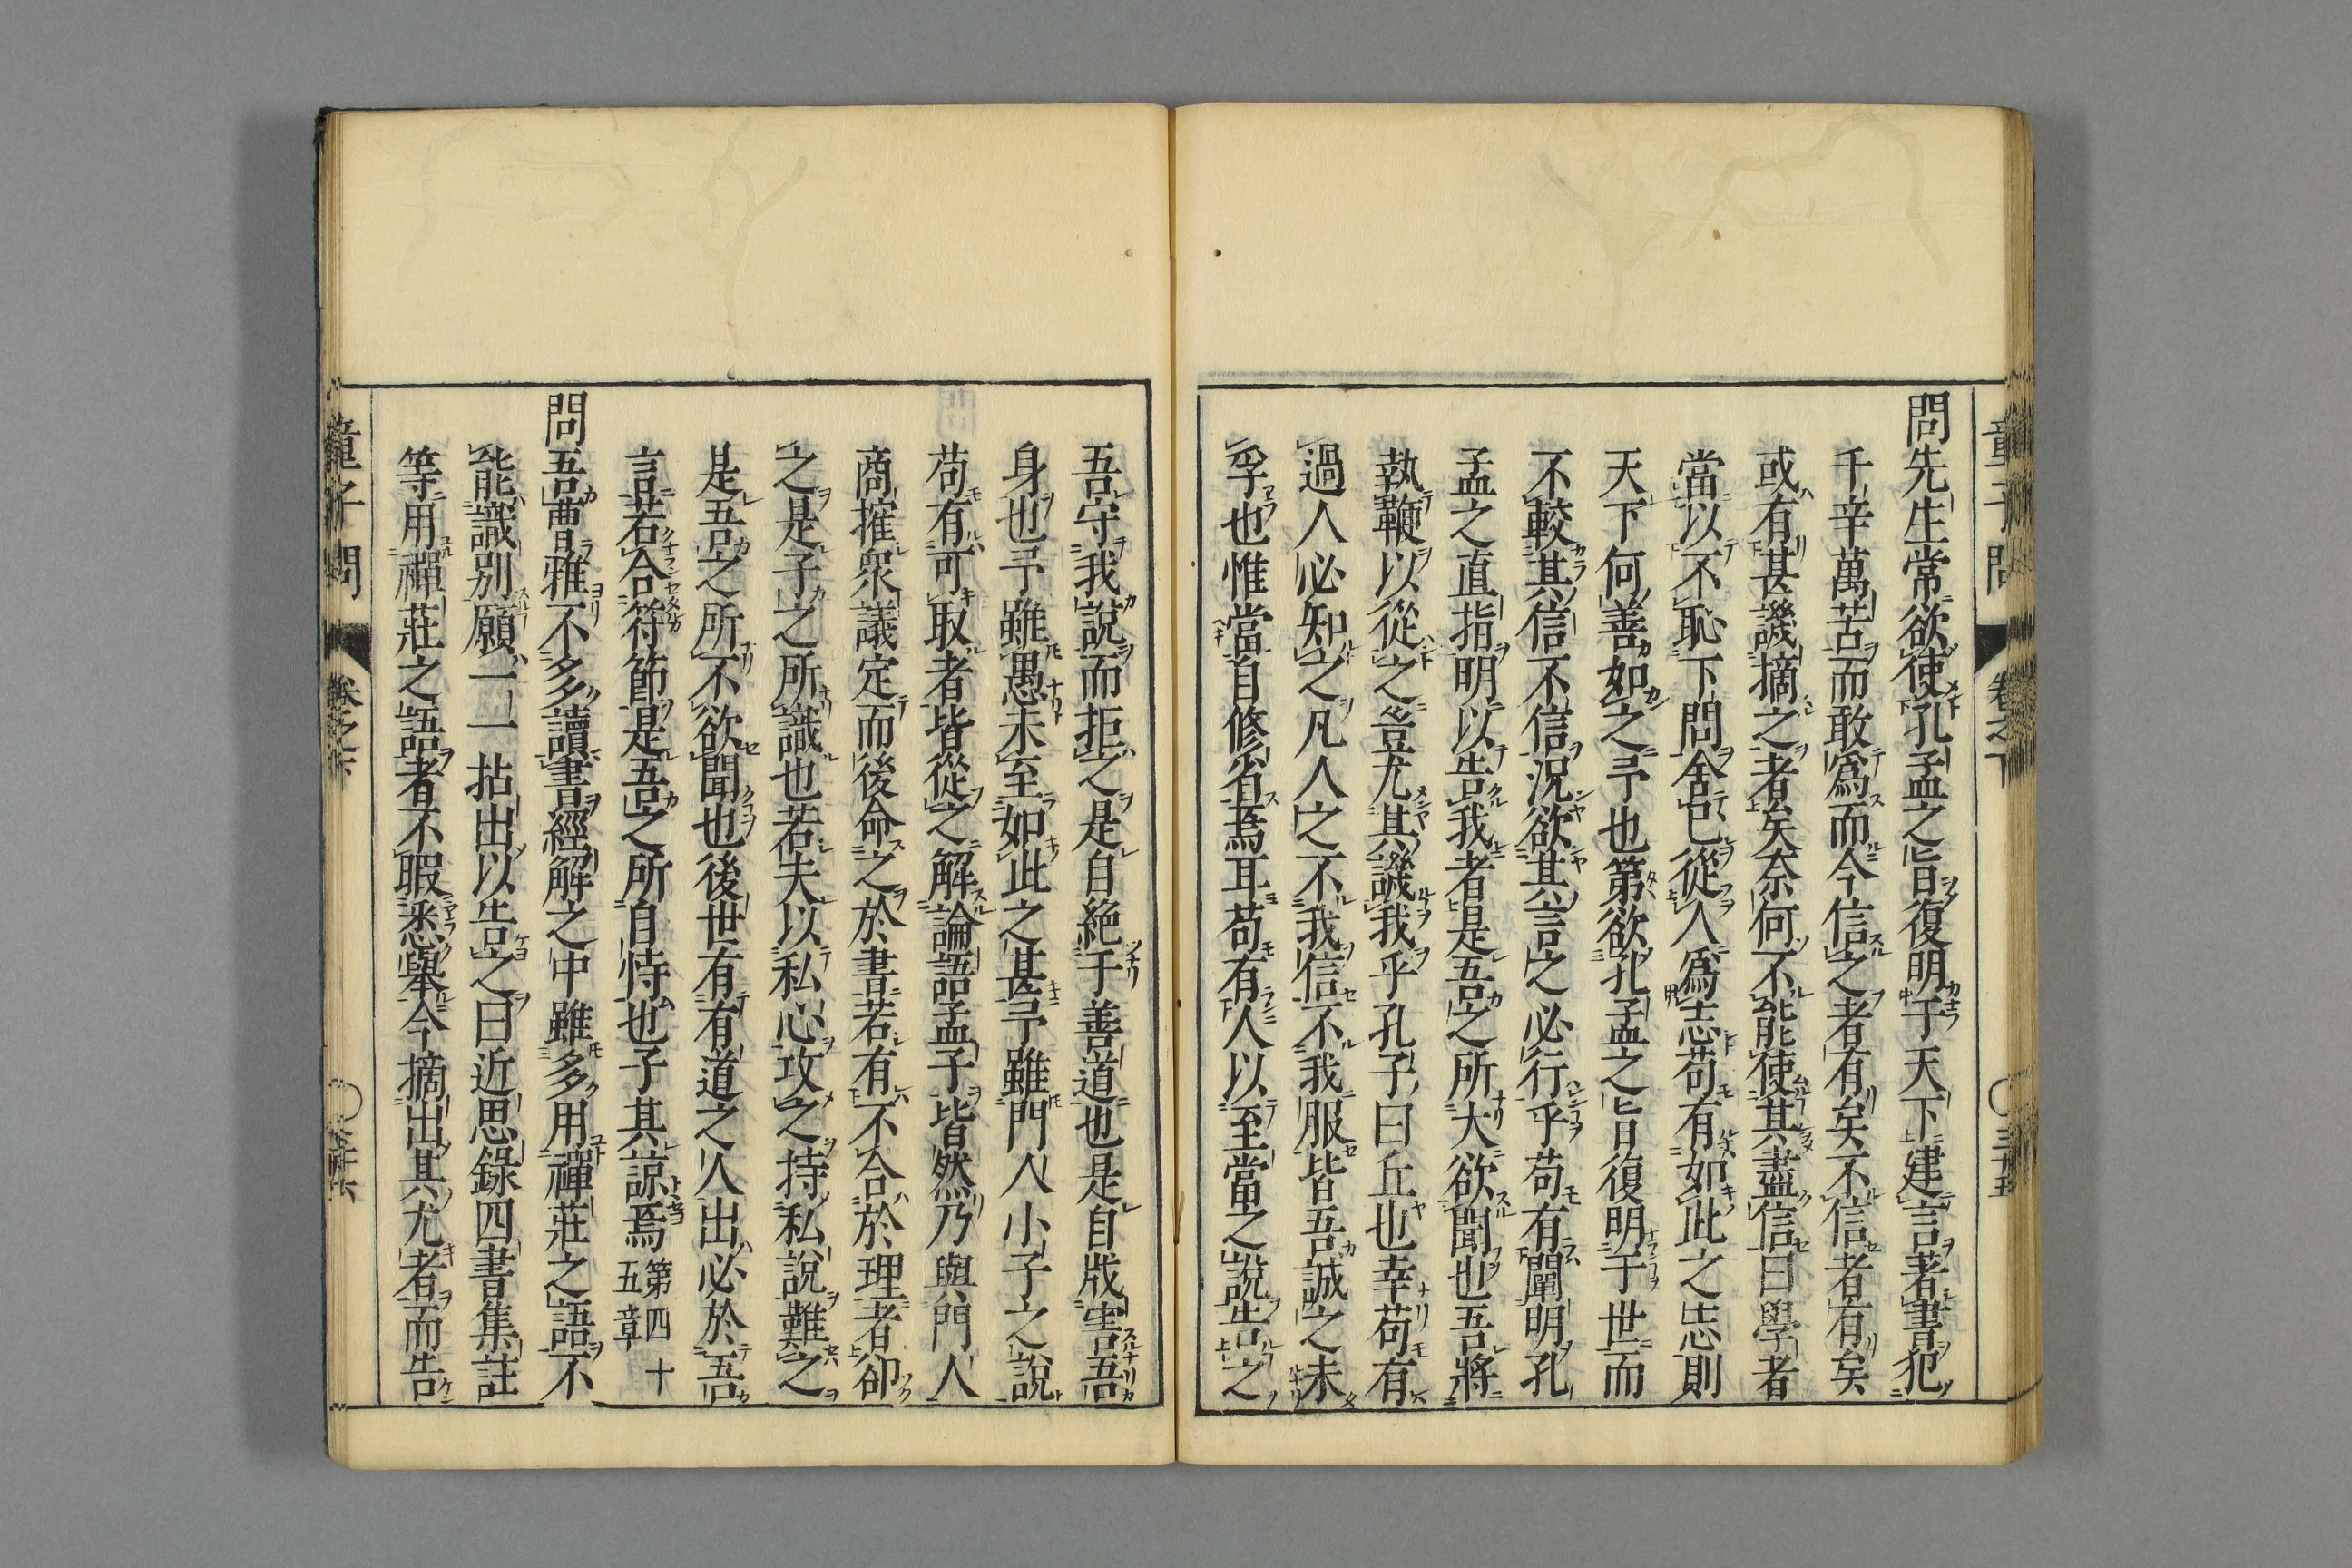 童子問 卷之下 三十五
問先生常欲使孔孟之旨復明于天下建言著書犯
千辛萬苦而敢爲而今信之者有矣不信者有矣
或有甚譏摘之者矣奈何不能使其盡信曰學者
當以不恥下問舍己從人爲志苟有如此之志則
天下何善如之予也第欲孔孟之旨復明于世而
不較其信不信況欲其言之必行乎苟有闡明孔
孟之直指明以告我者是吾之所大欲聞也吾將
執鞭以從之豈尤其譏我乎孔子曰丘也幸苟有
過人必知之凡人之不我信不我服皆吾誠之未
孚也惟當自修省焉耳苟有人以至當之說告之
吾守我說而拒之是自絕于善道也是自戕害吾
身也予雖愚未至如此之甚予雖門人小子之說
苟有可取者皆從之解論語孟子皆然乃與門人
商搉衆議定而後命之於書若有不合於理者卻
之是子之所識也若夫以私心攻之持私說難之
是吾之所不欲聞也後世有有道之人出必於吾
言若合符節是吾之所自恃也子其諒焉 第四十
五章
問吾曹雅不多讀書經解之中雖多用禪莊之語不
能識別願一一拈出以告之曰近思錄四書集註
等用禪莊之語者不暇悉舉今摘出其尤者而告
童子問 卷之下